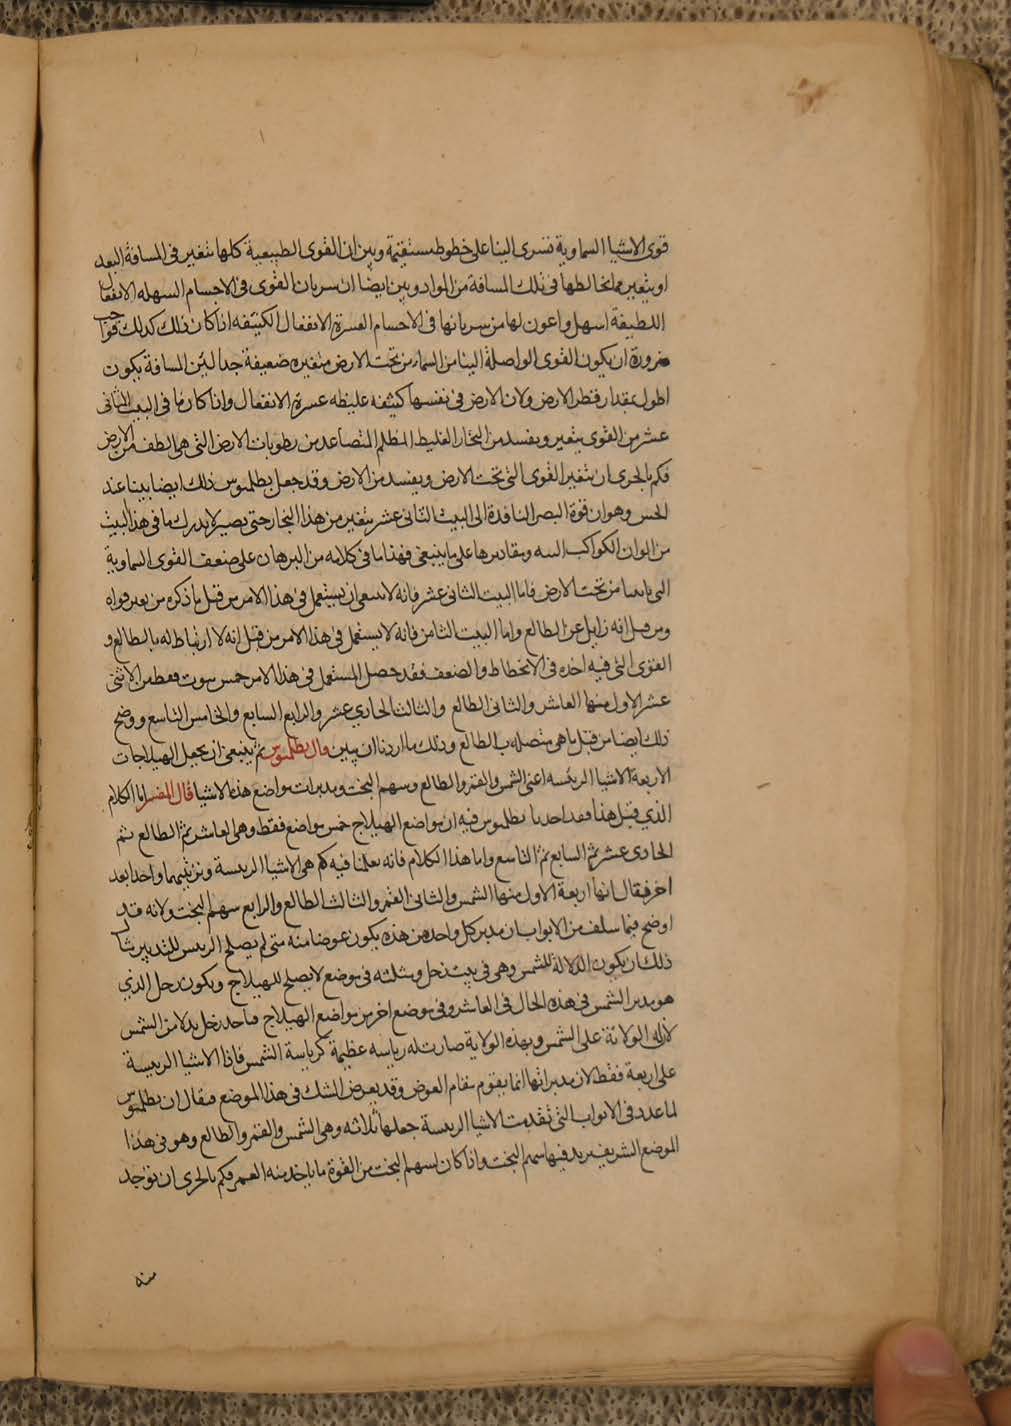 قوى الاشيا السماوية تسرى الينا على خطوط مستقيمة وبين ان القوى الطبيعية كلها تتغير فى المسافة البعد
او يتغير مما يخالطها فى تلك المسافة من المواد وبين ايضا ان سريان القوى فى الاجسام السهله الانفعال
اللطيفة اسهل واعون لها من سريانها فى الاجسام العسرة الانفعال الكثيفه اذا كان ذلك كذلك فواجب
ضرورة ان يكون القوى الواصلة الينا من السماء من تحت الارض متغيره ضعيفة جدا لئن المسافة يكون
اطول بمقدار قطر الارض ولان الارض فى نفسها كثيفه غليظه عسرة الانفعال واذا كان ما فى البيت الثانى
عشر من القوى يتغير ويفسد من البخار الغليظ المظلم المتصاعد من رطوبات الارض التى هى الطف من الارض
فكم بالحرى ان تتغير القوى التى تحت الارض ويفسد من الارض وقد جعل بطلميوس ذلك ايضا بينا عند
الحس وهو ان قوة البصر النافدة الى البيت الثانى عشر يتغير من هذا البخار حتى يصير لا يدرك ما فى هذا البيت
من الوان الكواكب ومقاديرها على ما ينبغى فهذا ما فى كلامه من البرهان على ضعف القوى السماوية
التى تاتينا من تحت الارض فاما البيت الثانى عشر فانه لا ينبغى ان يستعمل فى هذا الامر من قبل ما ذكره من تغير قواه
ومن قبل انه زايل عن الطالع واما البيت الثامن فانه لا يستعمل فى هذا الامر من قبل انه لا ارتباط له بالطالع و
القوى التى فيه اخده فى الانحطاط والضعف فقد حصل المستعمل فى هذا الامر خمس بيوت فقط من الاثنى
عشر الاول منها العاشر والثانى الطالع والثالث الحادي عشر والرابع السابع والخامس التاسع ووضح
ذلك ايضا من قبل ما هى متصله بالطالع وذلك ما اردنا ان يبين قال بطلميوس ثم ينبغى ان يجعل الهيلاجات
الاربعة الاشيا الرئسه اعنى الشمس والقمر والطالع وسهم البخت ومدبرات مواضع هذه الاشيا قال المفسر اما الكلام
الذي قبل هذا فقد اخبرنا بطلميوس فيه ان مواضع الهيلاج خمس مواضع فقط وهى العاشر ثم الطالع ثم
الحادى عشر ثم السابع ثم التاسع واما هذا الكلام فانه يعلمنا فيه كم هى الاشيا الريسة وترتيبهما واحدا بعد
اخر فقال انها اربعة الاول منها الشمس والثانى القمر والثالث الطالع والرابع سهم البخت ولانه قد
اوضح فيما سلف من الابواب ان مدبر كل واحد من هذه يكون عوضا منه متى لم يصلح الريس للتدبير مثا
ذلك ان يكون الدلالة للشمس وهى فى بيت زحل ومثلثه فى موضع لا يصلح للهيلاج ويكون زحل الذي
هو مدبر الشمس فى هذه الحال فى العاشر وفى موضع اخر من مواضع الهيلاج فنأخد زحل بدلا من الشمس
لان له الولاية على الشمس وبهذه الولاية صارت له رياسه عظيمة كرياسة الشمس فاذا الاشيا الريسة
على اربعة فقط لان مدبراتها انما يقوم مقام العوض وقد يعرض الشك فى هذا الموضع فيقال ان بطلميوس
لما عدد فى الابواب التى تقدمت الاشيا الريسة جعلها ثلاثه وهى الشمس والقمر والطالع وهو فى هذا
الموضع الشريف يريد فيها سهم البخت واذا كان لسهم البخت من القوة ما ياخد منه العمر فكم بالحرى ان توجد
منه